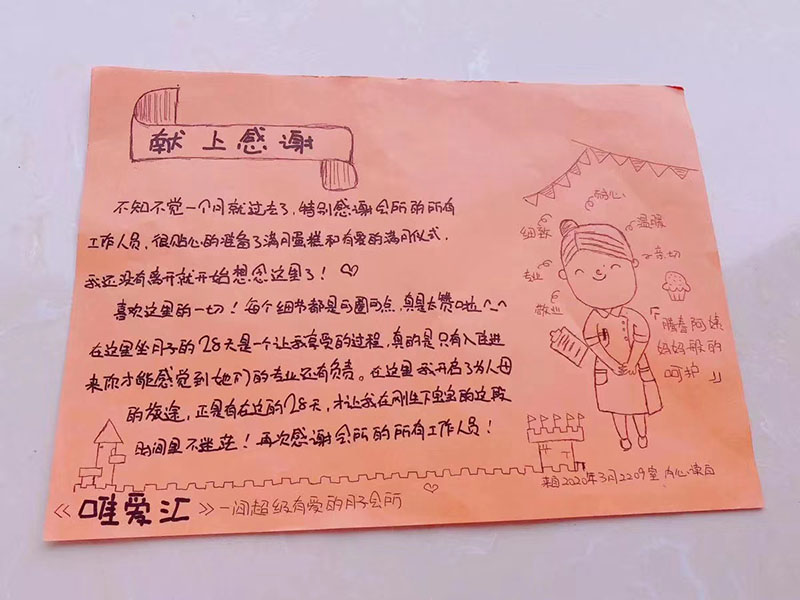 献上感谢
不知不觉一个月就过去了,特别感谢会所的所有
工作人员,很贴心的准备了满月蛋糕和有爱的满月仪式.
我还没有离开就开始想念这里了!♡
喜欢这里的一切!每个细节都是可圈可点,真是太赞啦^_^
在这里坐月子的28天是一个让我享受的过程,真的是只有入住进
来你才能感觉到她们的专业还有负责。在这里我开启了为人母
的旅途,正是有在这的28天,才让我在刚生下宝宝的这段
时间里不迷茫!再次感谢会所的所有工作人员!
耐心
细致
温暖
亲切
专业
敬业
『腾春阿姨
妈妈般的
呵护』
来自2020年3月2209室 内心读白
《唯爱汇》一间超级有爱的月子会所